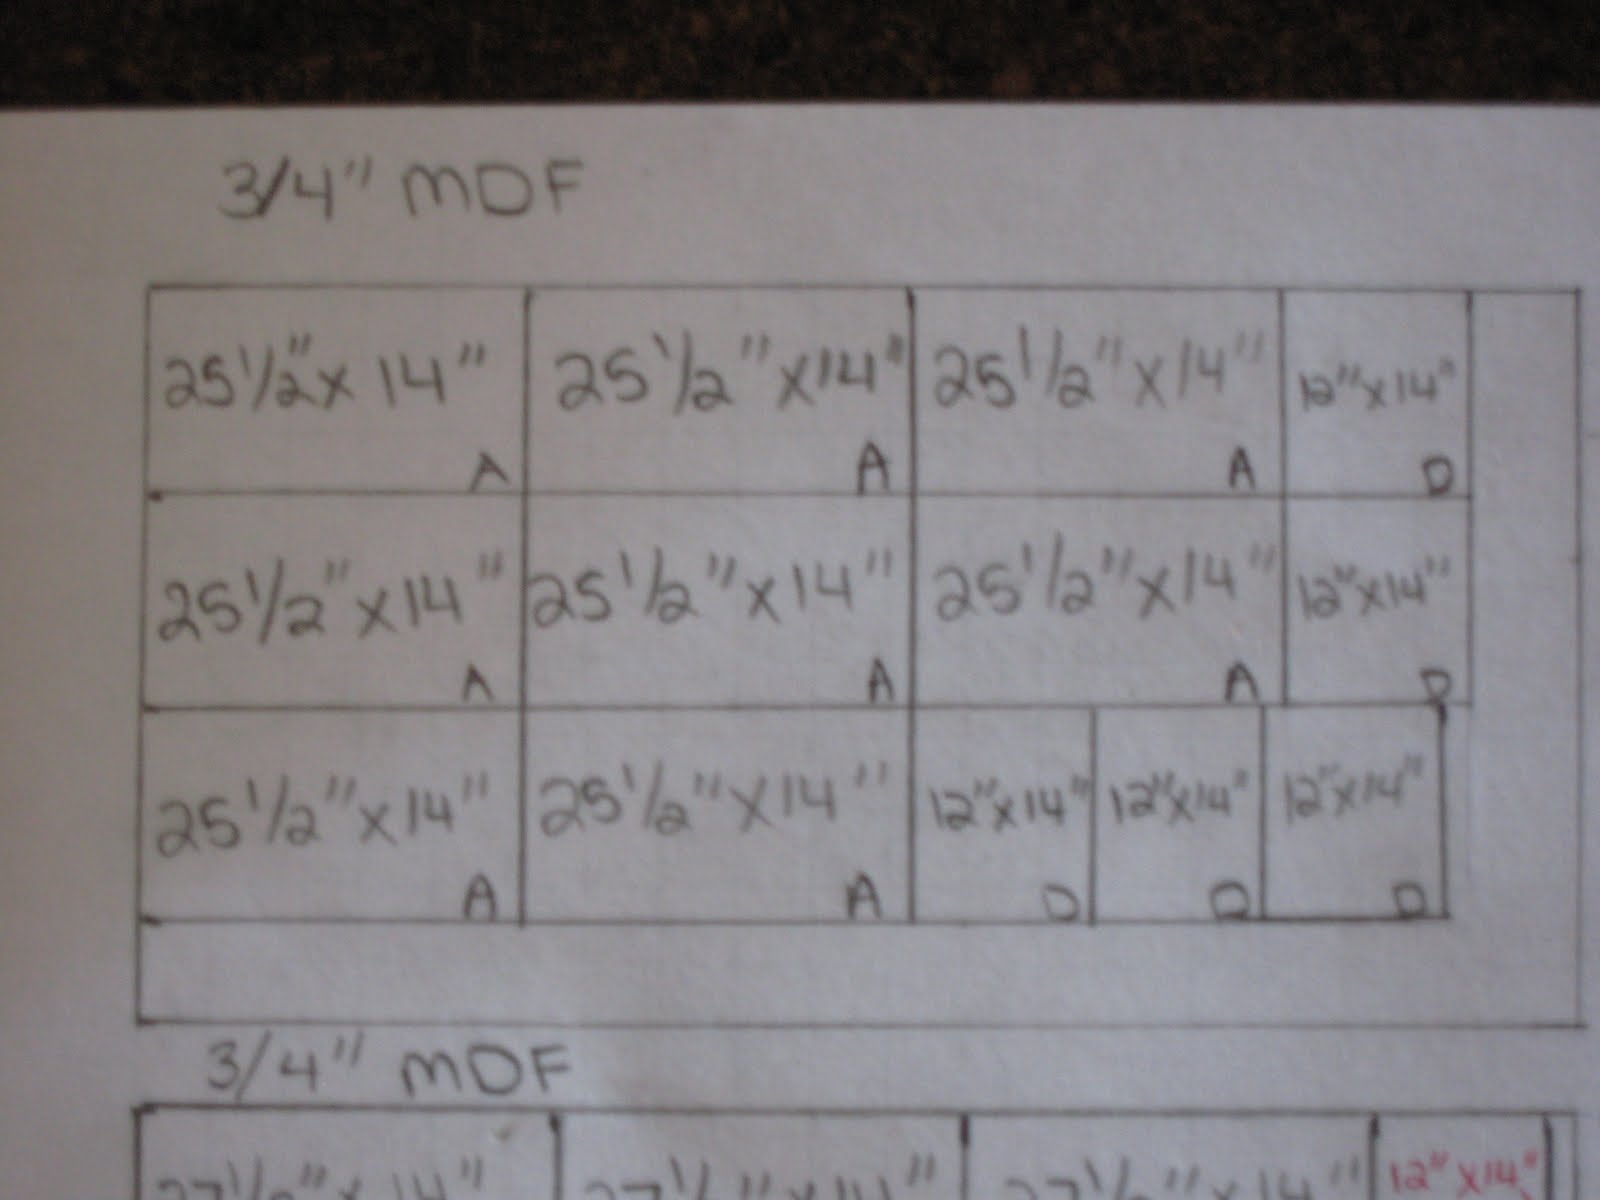 3/4" MDF
25 1/2" x 14" 25 1/2" x 14" 25 1/2" x 14" 12" x 14"
A A A D
25 1/2" x 14" 25 1/2" x 14" 25 1/2" x 14" 12" x 14"
A A A D
25 1/2" x 14" 25 1/2" x 14" 12" x 14" 12" x 14" 12" x 14"
A A D D D
3/4" MDF
27 1/2" x 14" 27 1/2" x 14" 27 1/2" x 14" 12" x 14"